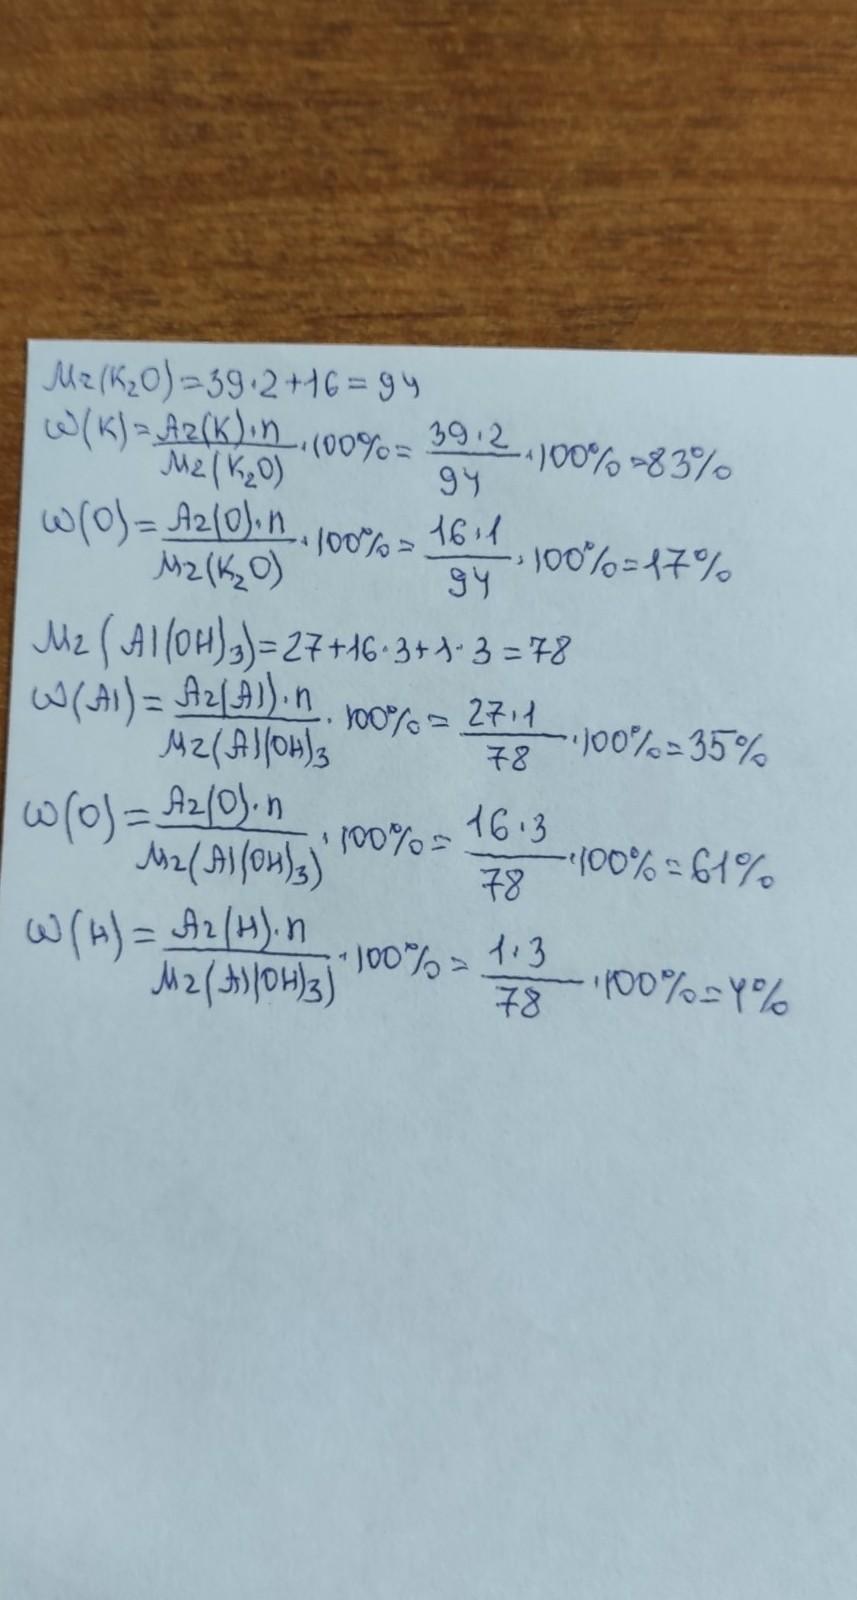 Mr(K₂O)=39·2+16=94
ω(K)=Ar(K)·n/Mr(K₂O)·100%=39·2/94·100%=83%
ω(O)=Ar(O)·n/Mr(K₂O)·100%=16·1/94·100%=17%
Mr(Al(OH)₃)=27+16·3+1·3=78
ω(Al)=Ar(Al)·n/Mr(Al(OH)₃·100%=27·1/78·100%=35%
ω(O)=Ar(O)·n/Mr(Al(OH)₃)·100%=16·3/78·100%=61%
ω(H)=Ar(H)·n/Mr(Al(OH)₃)·100%=1·3/78·100%=4%